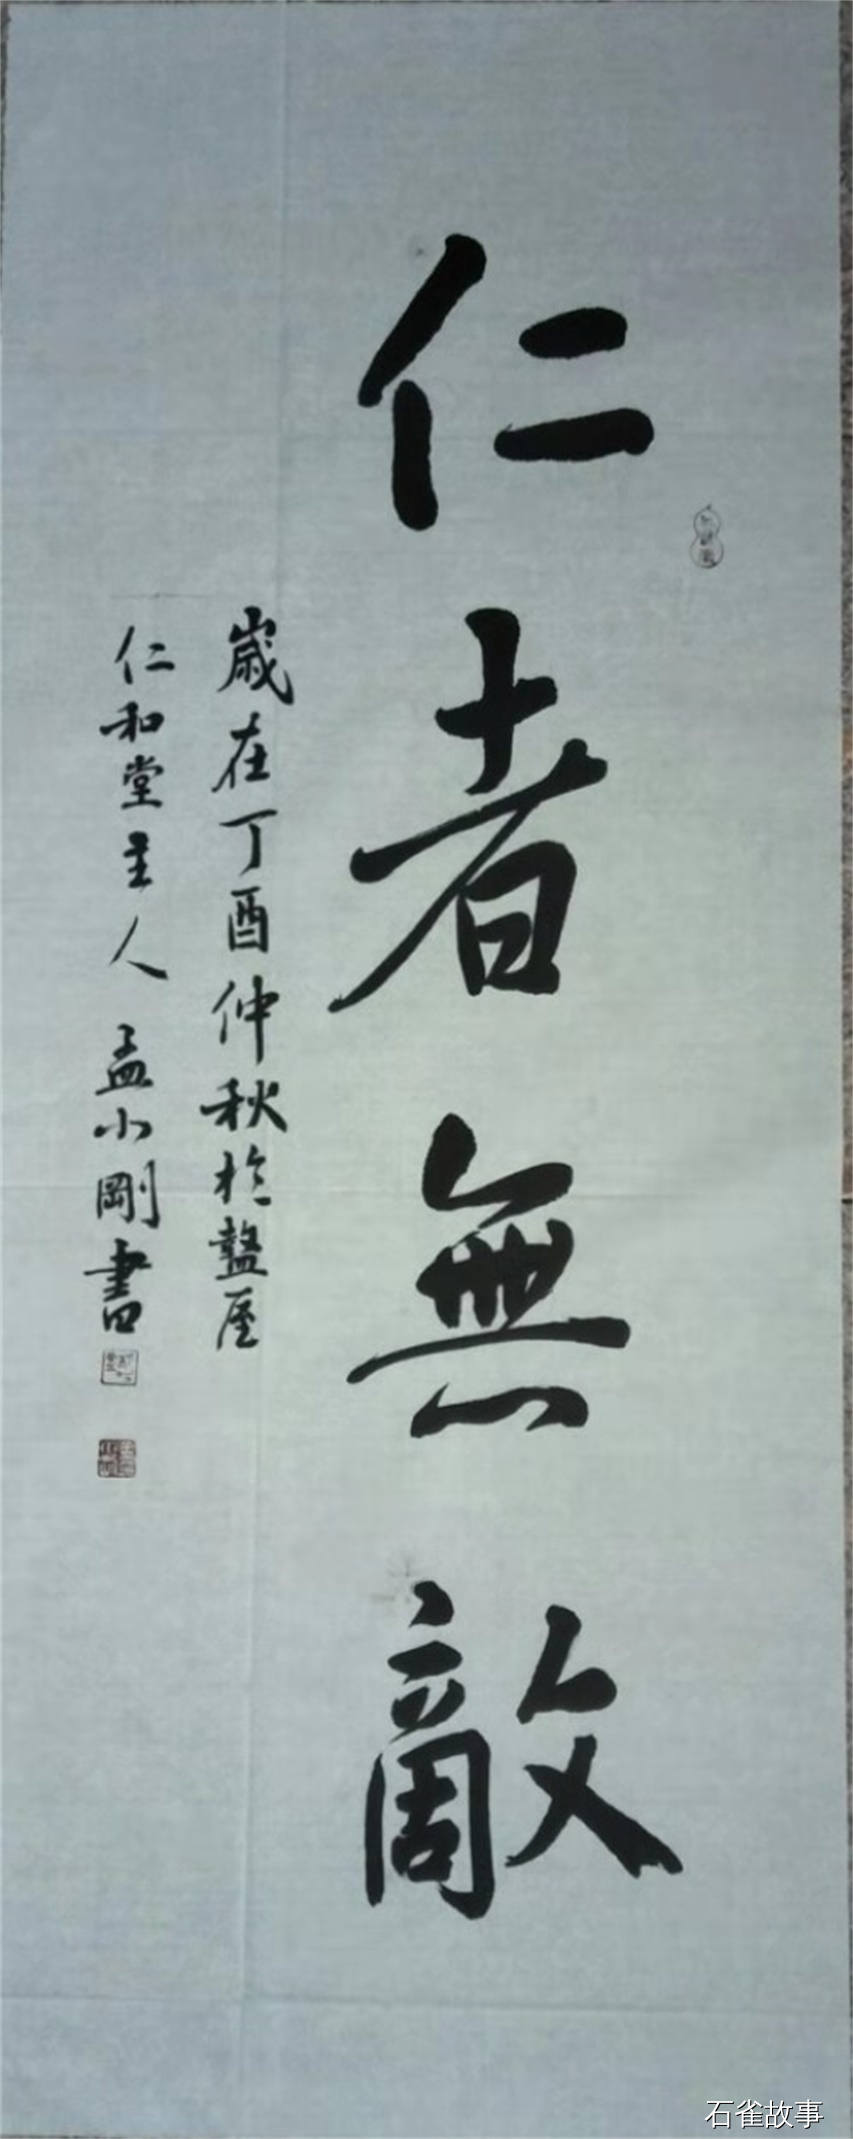 仁者無敵
歲在丁酉仲秋於盩厔
仁和堂主人 孟小剛書
石雀故事